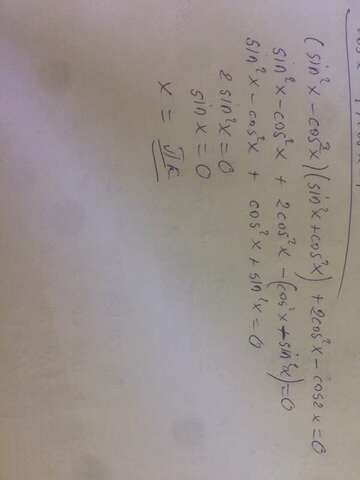 (sin²x - cos²x)(sin²x + cos²x) + 2cos²x - cos2x = 0
sin²x - cos²x + 2cos²x - (cos²x + sin²x) = 0
sin²x - cos²x + cos²x + sin²x = 0
2 sin²x = 0
sin x = 0
x = πk